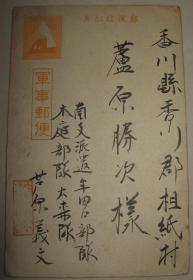 郵便はがき
軍事郵便
香川縣香川郡枌紙村
蘆原勝次様
南支派遣年四口部隊
木庭部隊大赤隊
芦原義文